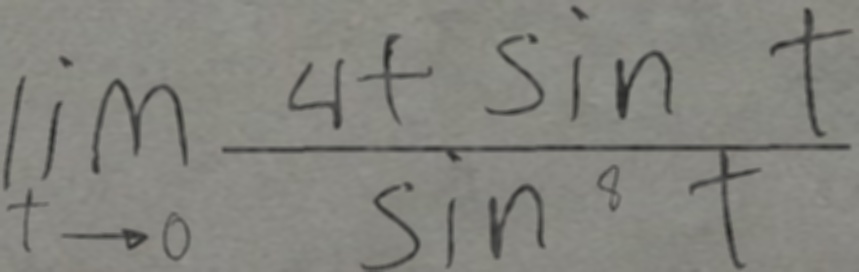 \lim_{t \to 0} \frac{4t \sin t}{\sin^8 t}